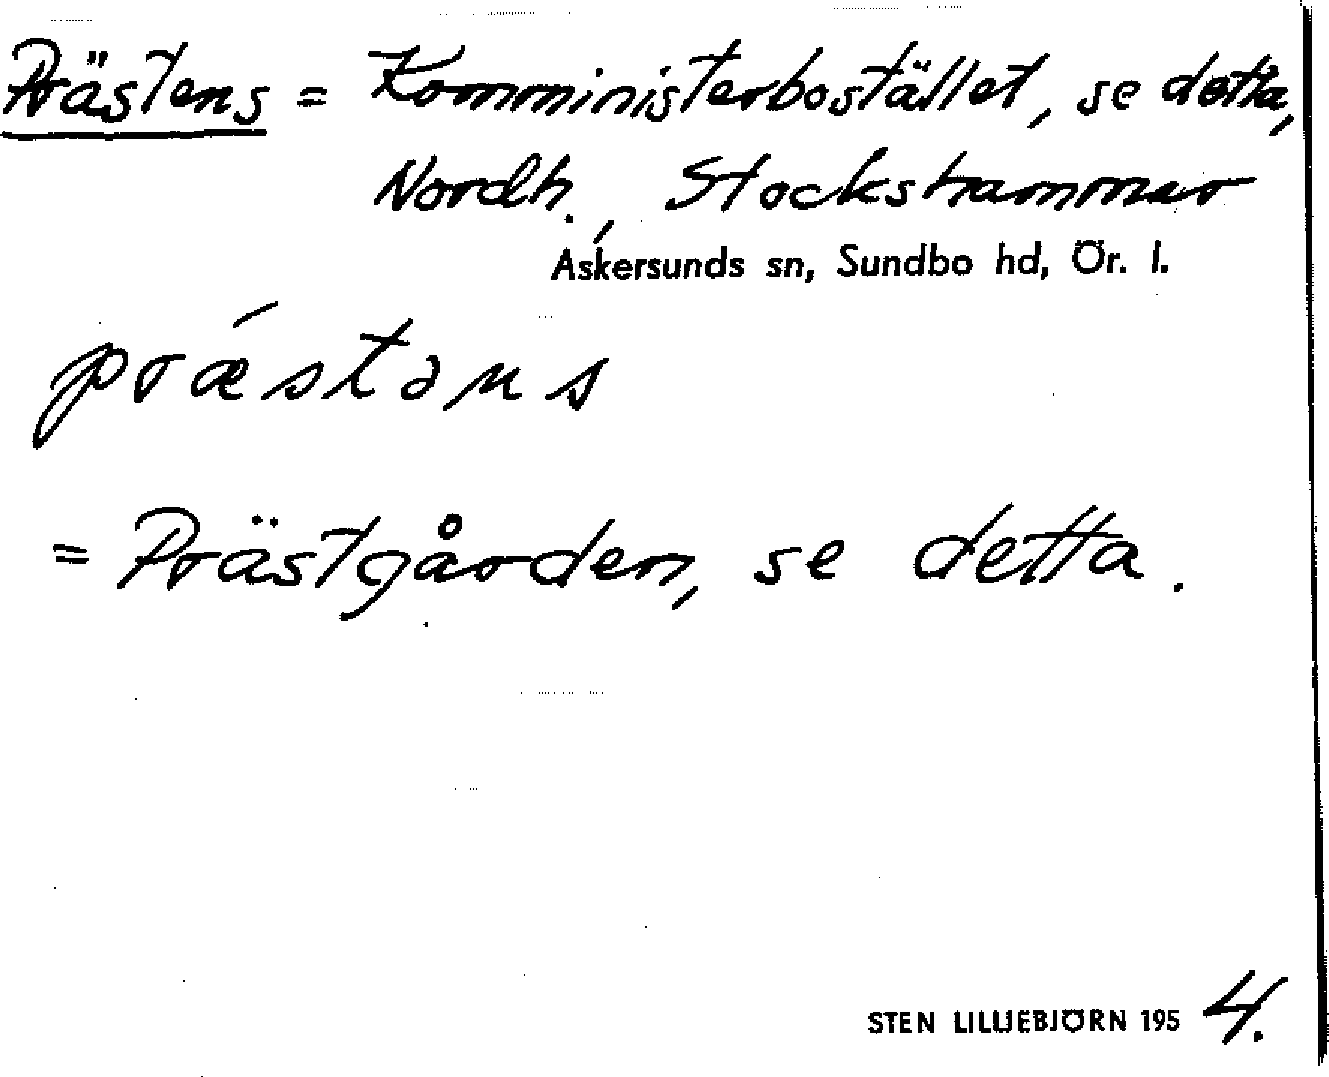 Prästens = Komministerbostället, se detta,
Nordh., Stockshammar
Askersunds sn, Sundbo hd, Ör. l.
præ´stəns
= Prästgården, se detta.
STEN LILLIEBJÖRN 1954.